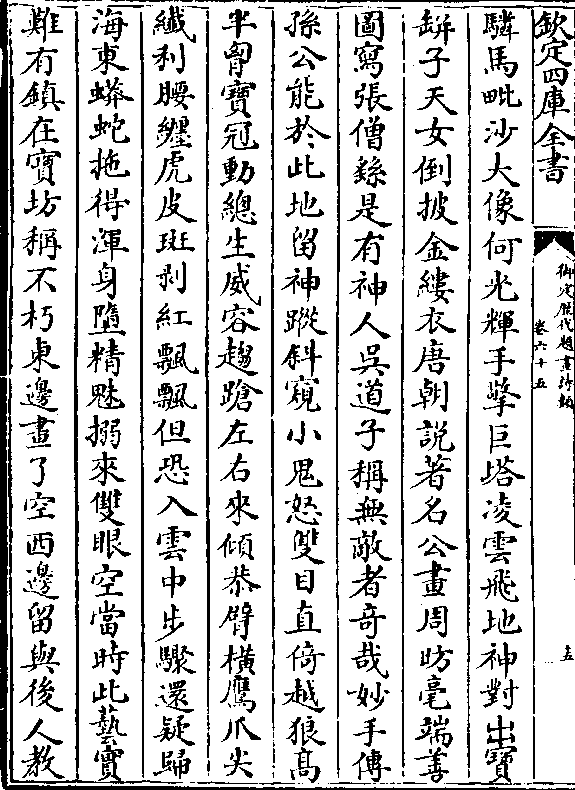 欽定四庫全書
御定歷代題畫詩類
卷六十五
五
驎馬毗沙大像何光輝手擎巨塔凌雲飛地神對出寶
缾子天女倒披金縷衣唐朝說著名公畫周昉毫端善
圖寫張僧繇是有神人吳道子稱無敵者奇哉妙手傳
孫公能於此地留神蹤斜窺小鬼怒雙目直倚越狼高
半胷寶冠動總生威容趨蹌左右來傾恭臂橫鷹爪尖
纖利腰纏虎皮斑剥紅飄飄但恐入雲中步驟還疑歸
海東蟒蛇拖得渾身墮精魅搦來雙眼空當時此藝實
難有鎮在寶坊稱不朽東邊畫了空西邊留與後人教